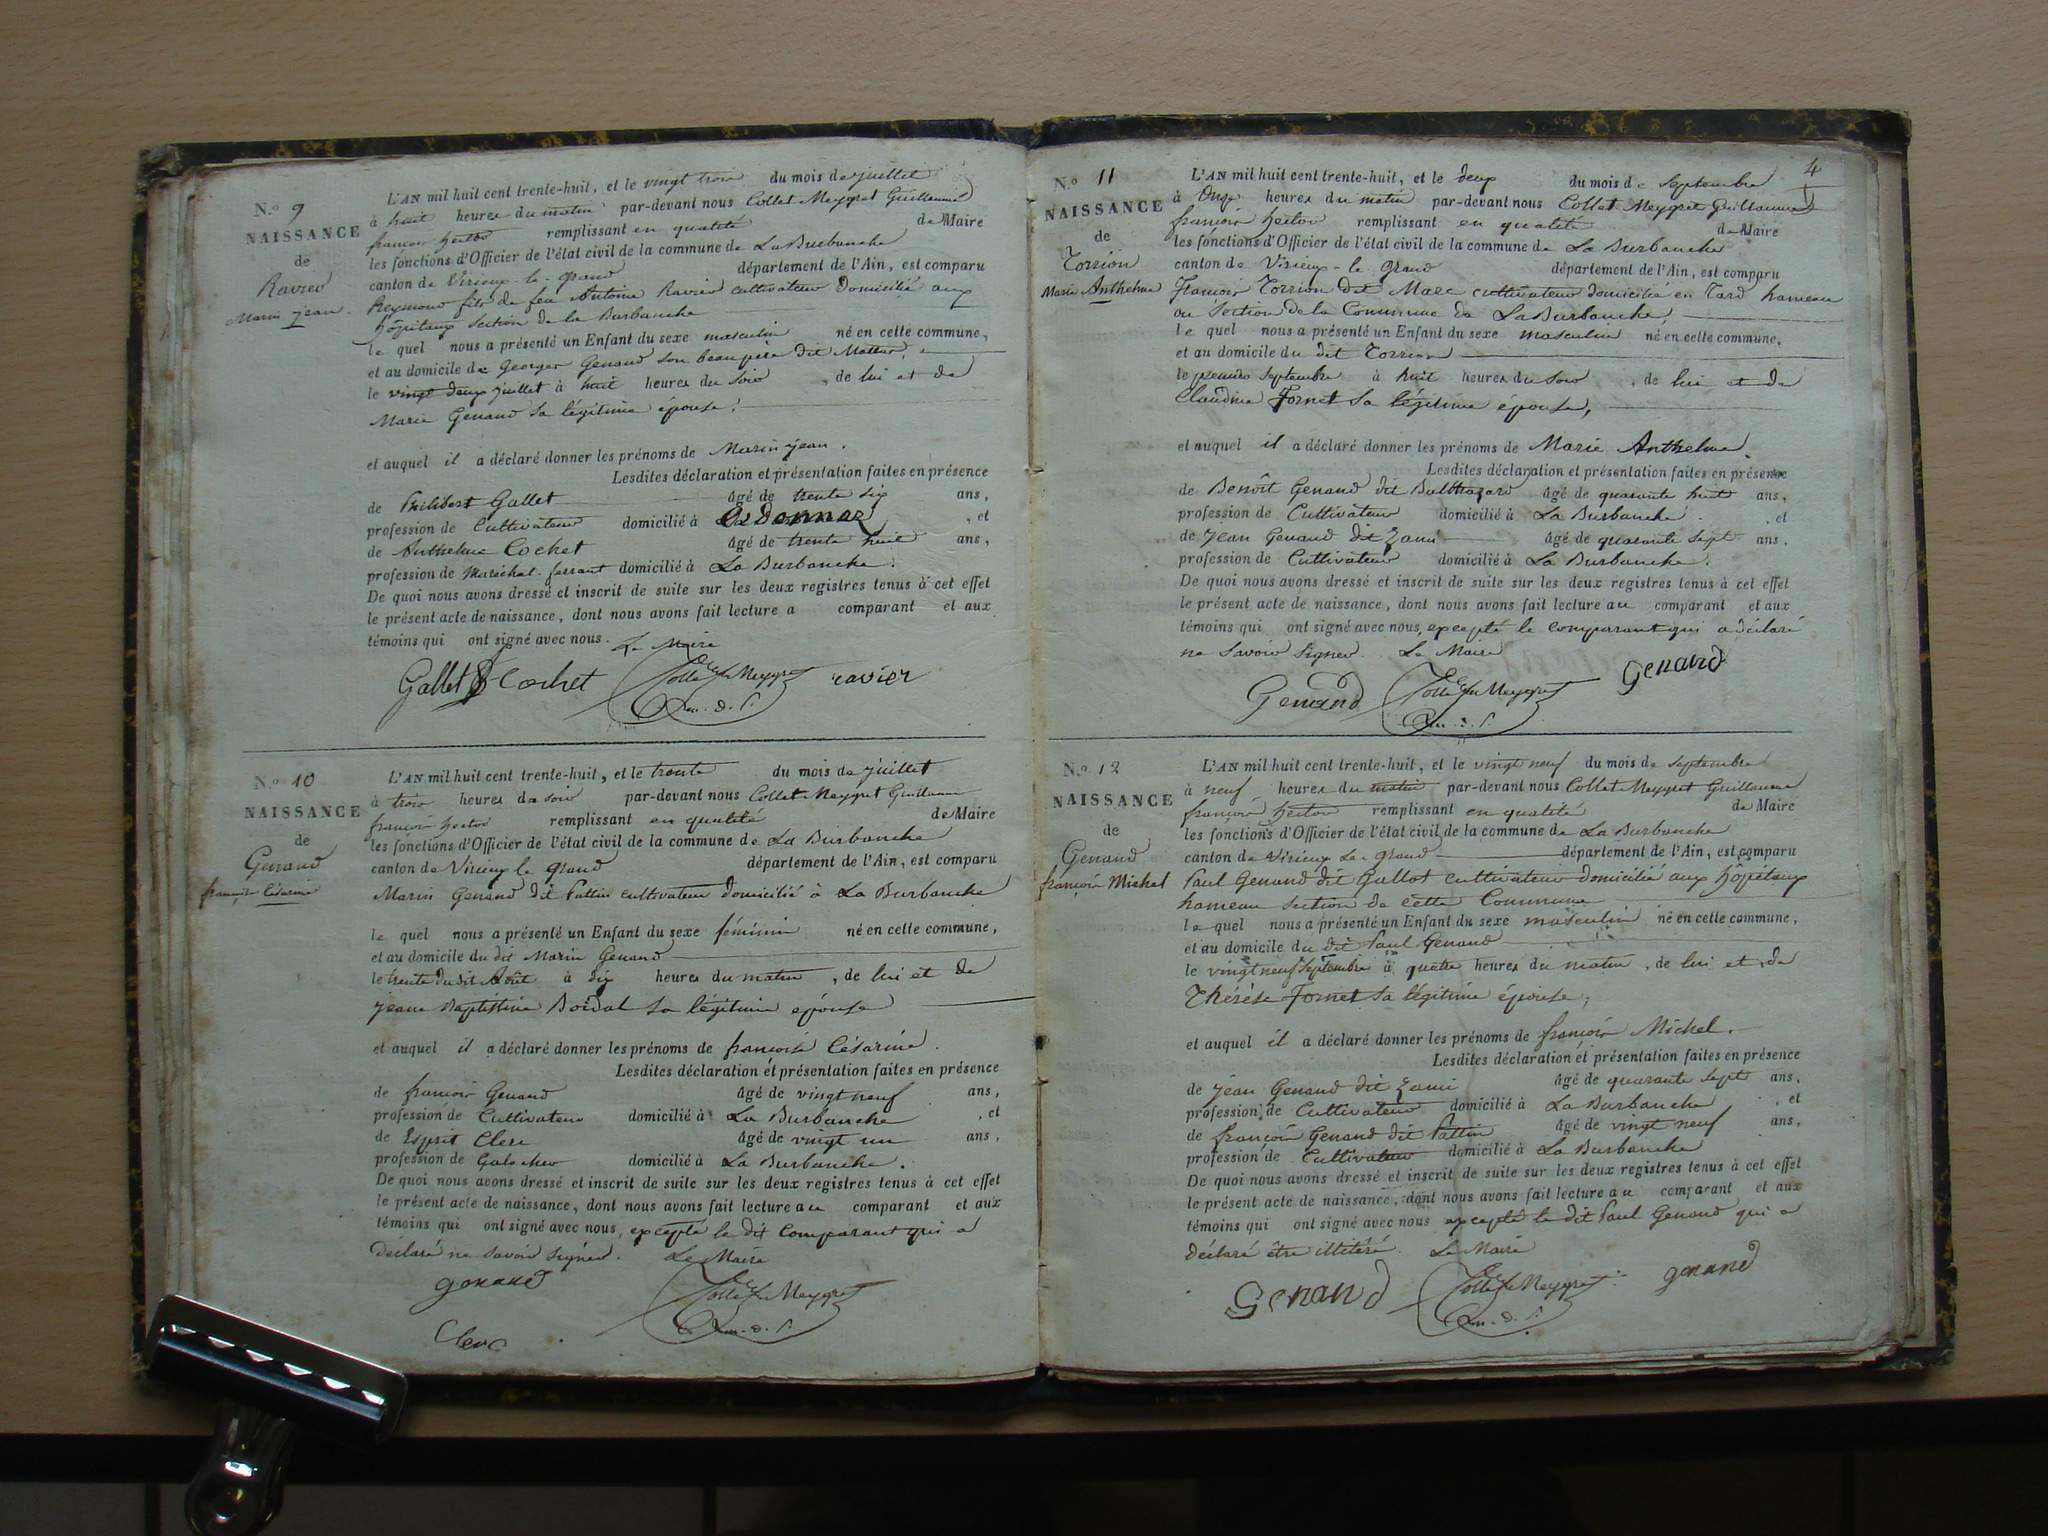 N.º 9
NAISSANCE
de
Ravier
Marin jean.
L'AN mil huit cent trente-huit, et le vingt trois du mois de juillet
à huit heures du matin par-devant nous Collet-Meygret Guillaume
françois hector remplissant en qualité de Maire
les fonctions d'Officier de l'état civil de la commune de La Burbanche
canton de Virieux-le-grand département de l'Ain, est comparu
Reymond fils de feu Antoine Ravier cultivateur domicilié aux
hôpitaux section de la Burbanche
le quel nous a présenté un Enfant du sexe masculin né en cette commune,
et au domicile de Georges Genand son beau père dit
le vingt deux juillet à huit heures du soir, de lui et de
Marie Genand sa légitime épouse;
et auquel il a déclaré donner les prénoms de Marin jean.
Lesdites déclaration et présentation faites en présence
de Philibert Gallet âgé de trente six ans,
profession de Cultivateur domicilié à Ordonnaz, et
de Anthelme Cochet âgé de trente huit ans,
profession de Maréchal-ferrant domicilié à La Burbanche.
De quoi nous avons dressé et inscrit de suite sur les deux registres tenus à cet effet
le présent acte de naissance, dont nous avons fait lecture a comparant et aux
témoins qui ont signé avec nous. Le Maire
Gallet Cochet Collet Meygret ravier
N.º 10
NAISSANCE
de
Genand
françoise Césarine
L'AN mil huit cent trente-huit, et le trente du mois de juillet
à trois heures de soir par-devant nous Collet-Meygret Guillaume
françois hector remplissant en qualité de Maire
les fonctions d'Officier de l'état civil de la commune de La Burbanche
canton de Virieux le grand département de l'Ain, est comparu
Marin Genand dit Pattin cultivateur domicilié à La Burbanche
le quel nous a présenté un Enfant du sexe féminin né en cette commune,
et au domicile du dit Marin Genand
le trente du dit Août à dix heures du matin, de lui et de
jeane Baptistine Boidal sa légitime épouse
et auquel il a déclaré donner les prénoms de françoise Césarine.
Lesdites déclaration et présentation faites en présence
de françois Genand âgé de vingt neuf ans,
profession de Cultivateur domicilié à La Burbanche, et
de Esprit Clerc âgé de vingt un ans,
profession de Galocher domicilié à La Burbanche.
De quoi nous avons dressé et inscrit de suite sur les deux registres tenus à cet effet
le présent acte de naissance, dont nous avons fait lecture au comparant et aux
témoins qui ont signé avec nous, excepté le dit comparant qui a
déclaré ne savoir signer. Le Maire
genand Collet Meygret
Clerc
4
N.º 11
NAISSANCE
de
Torrion
Marie Anthelme
L'AN mil huit cent trente-huit, et le deux du mois de septembre
à Onze heures du matin par-devant nous Collet-Meygret Guillaume
françois hector remplissant en qualité de Maire
les fonctions d'Officier de l'état civil de la commune de La Burbanche
canton de Virieux-le-grand département de l'Ain, est comparu
François Torrion dit Marc cultivateur domicilié en Tard hameau
ou Section de la Commune de La Burbanche,
le quel nous a présenté un Enfant du sexe masculin né en cette commune,
et au domicile du dit Torrion
le premier septembre à huit heures du soir, de lui et de
Claudine Fornet sa légitime épouse,
et auquel il a déclaré donner les prénoms de Marie Anthelme.
Lesdites déclaration et présentation faites en présence
de Benoît Genand dit Balthazard âgé de quarante huit ans,
profession de Cultivateur domicilié à La Burbanche, et
de jean Genand dit Zami âgé de quarante sept ans.
profession de Cultivateur domicilié à La Burbanche.
De quoi nous avons dressé et inscrit de suite sur les deux registres tenus à cet effet
le présent acte de naissance, dont nous avons fait lecture au comparant et aux
témoins qui ont signé avec nous, excepté le comparant qui a déclaré
ne savoir signer. Le Maire
Genand Collet Meygret Genand
N.º 12
NAISSANCE
de
Genand
françois Michel
L'AN mil huit cent trente-huit, et le vingt neuf du mois de septembre
à neuf heures du matin par-devant nous Collet-Meygret Guillaume
françois hector remplissant en qualité de Maire
les fonctions d'Officier de l'état civil de la commune de La Burbanche
canton de Virieux le-grand département de l'Ain, est comparu
Paul Genand dit Gallot cultivateur domicilié aux hôpitaux
hameau section de cette Commune
le quel nous a présenté un Enfant du sexe masculin né en cette commune,
et au domicile du dit Paul Genand
le vingt neuf septembre à quatre heures du matin, de lui et de
Thérèse Fornet sa légitime épouse;
et auquel il a déclaré donner les prénoms de françois Michel.
Lesdites déclaration et présentation faites en présence
de jean Genand dit Zami âgé de quarante sept ans,
profession de Cultivateur domicilié à La Burbanche, et
de françois Genand dit Pattin âgé de vingt neuf ans,
profession de Cultivateur domicilié à La Burbanche
De quoi nous avons dressé et inscrit de suite sur les deux registres tenus à cet effet
le présent acte de naissance, dont nous avons fait lecture au comparant et aux
témoins qui ont signé avec nous excepté le dit Paul Genand qui a
déclaré être illitéré. Le Maire
Genand Collet Meygret genand